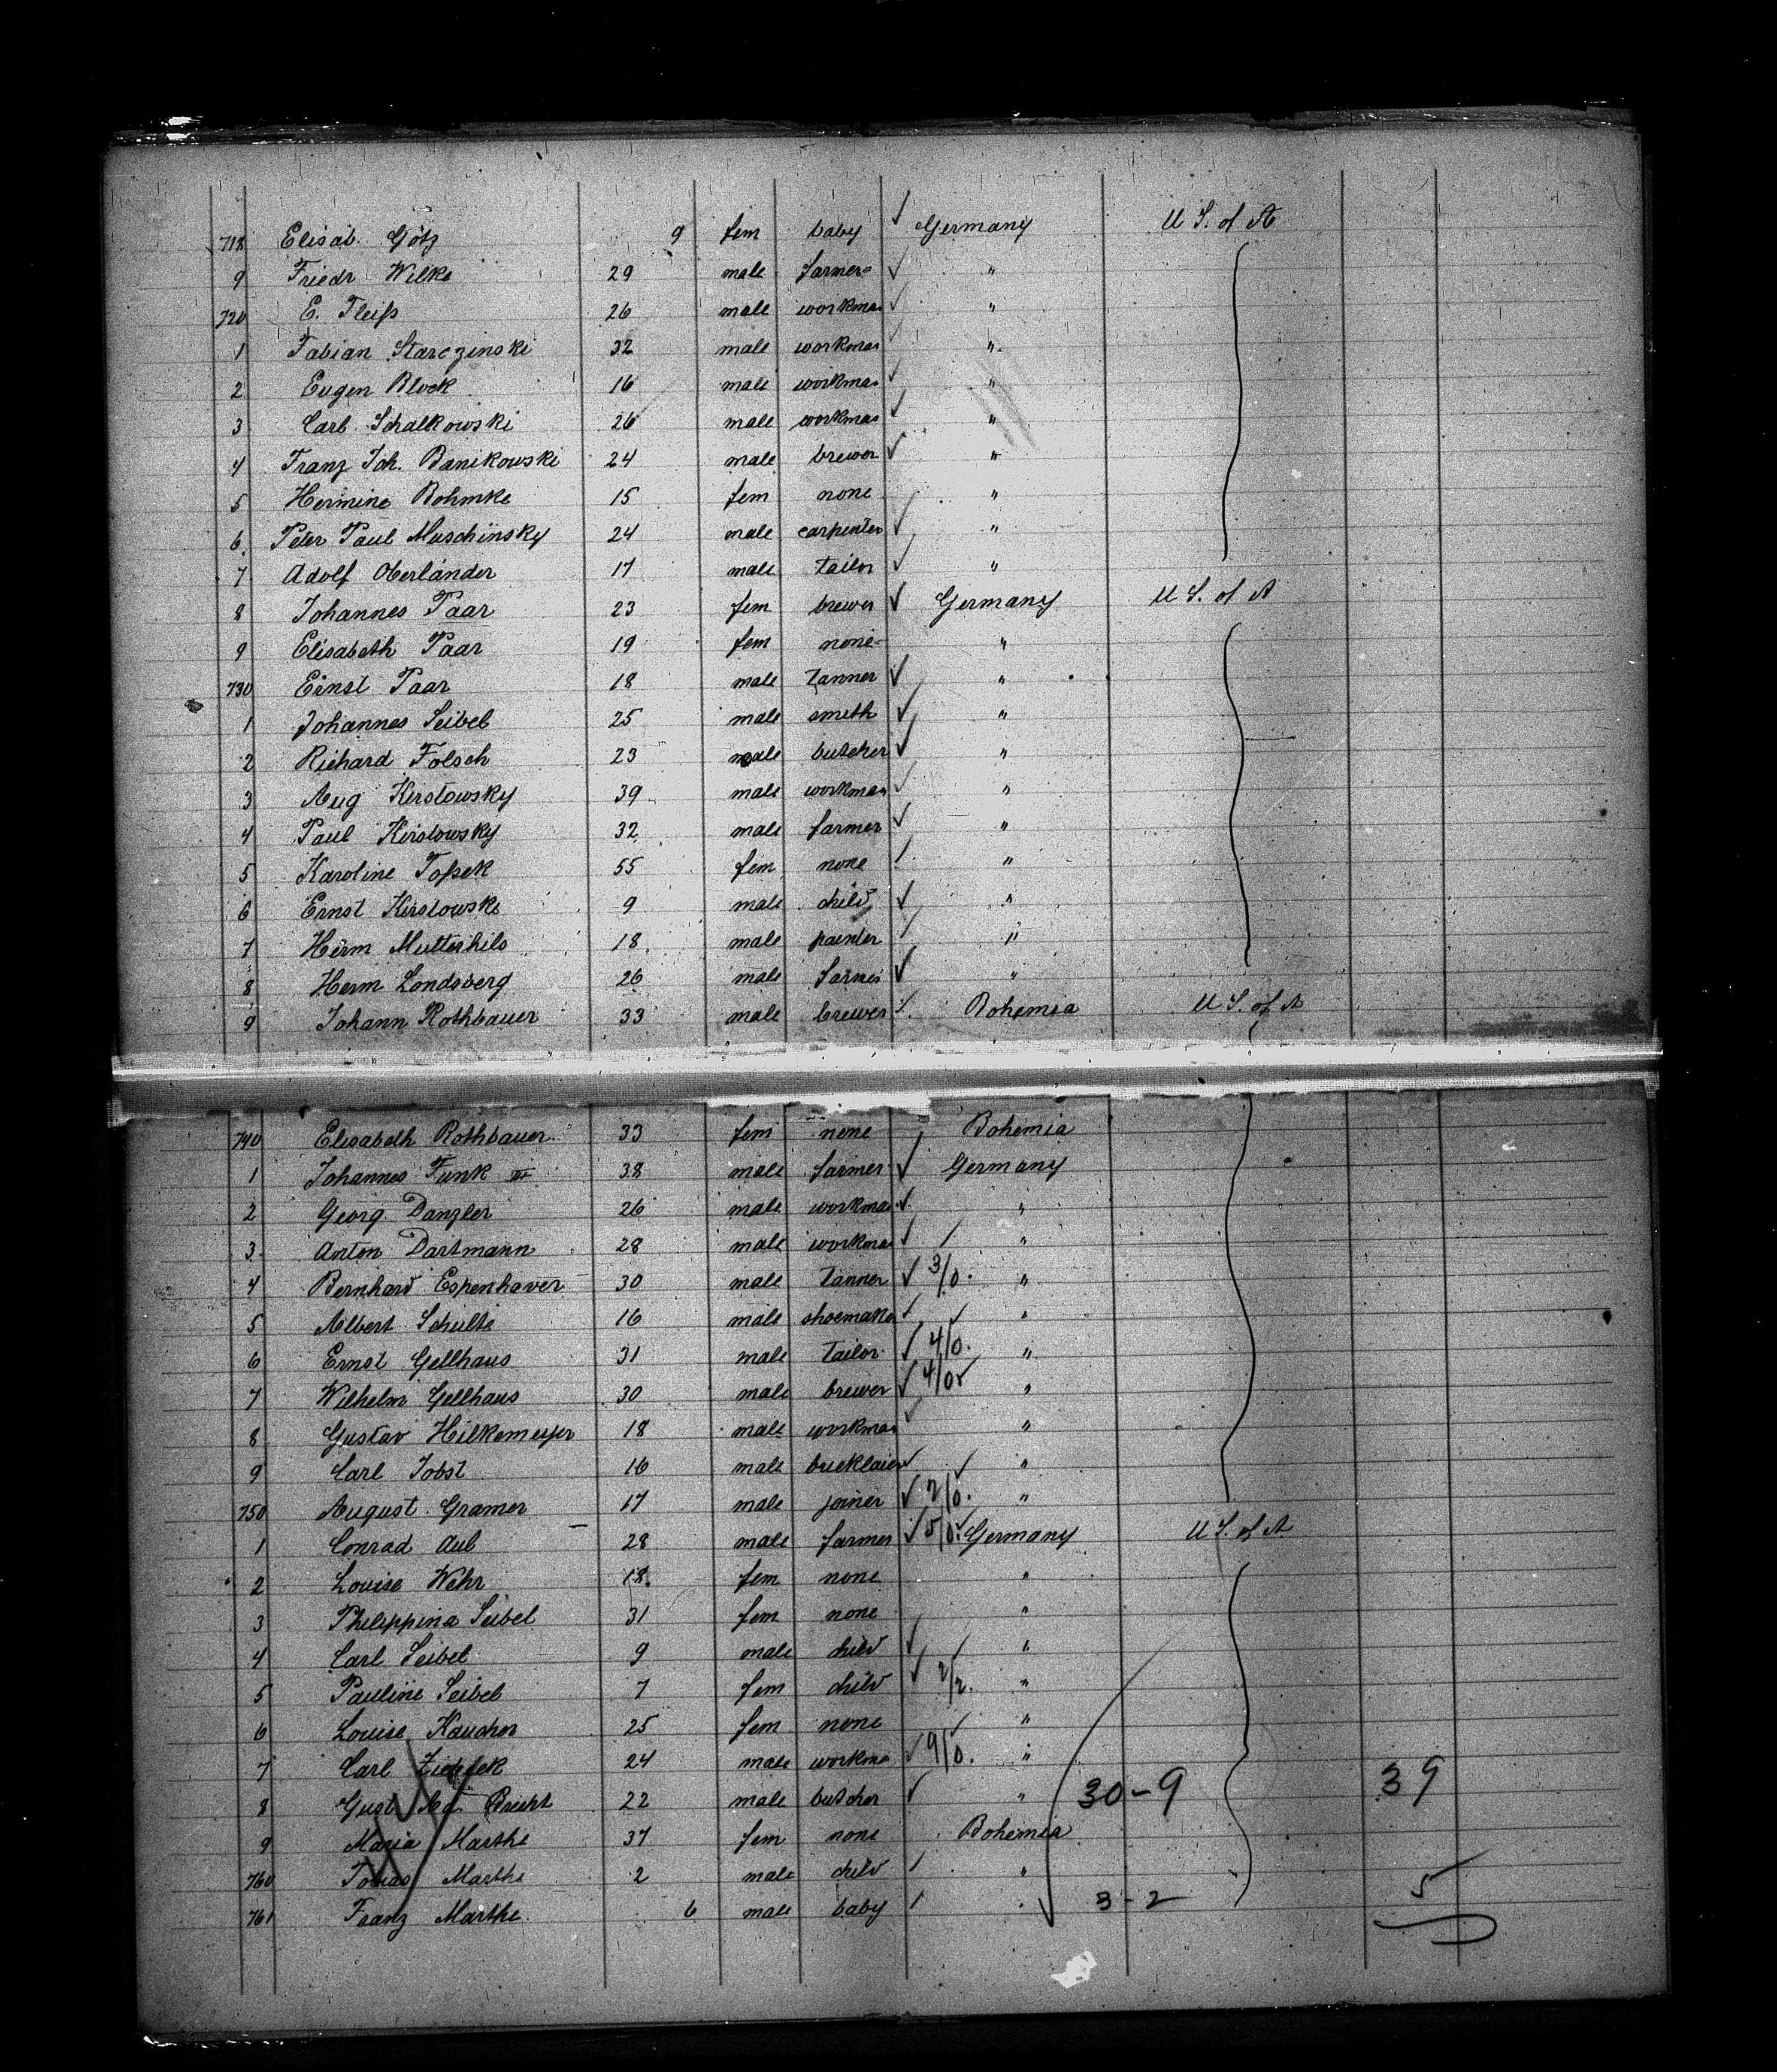 718 Elisab. Götz 9 fem baby ✓ Germany U S. of A
9 Friedr Wilke 29 male farmer ✓ "
720 E. Fleiß 26 male workman ✓ "
1 Fabian Starczinski 32 male workman ✓ "
2 Eugen Block 16 male workman ✓ "
3 Carl Schalkowski 26 male workman ✓ "
4 Franz Joh. Banikowski 24 male brewer ✓ "
5 Hermine Bohmke 15 fem none "
6 Peter Paul Muschinsky 24 male carpenter ✓ "
7 Adolf Oberländer 17 male tailor ✓ "
8 Johannes Paar 23 fem brewer ✓ Germany U S. of A
9 Elisabeth Paar 19 fem none "
730 Ernst Paar 18 male tanner ✓ "
1 Johannes Seibel 25 male smith ✓ "
2 Richard Folsch 23 male butcher ✓ "
3 Aug Kirstowsky 39 male workman ✓ "
4 Paul Kirstowsky 32 male farmer ✓ "
5 Karoline Toßek 55 fem none "
6 Ernst Kirstowski 9 male child ✓ "
7 Herm 18 male painter "
8 Herm Londsberg 26 male farmer ✓ "
9 Johann Rothbauer 33 male brewer Bohemia U S. of A
740 Elisabeth Rothbauer 33 fem none Bohemia
1 Johannes Funk 38 male farmer ✓ Germany
2 Georg Danzler 26 male workman ✓ "
3 Anton Dartmann 28 male workman ✓ "
4 Bernhard Espenhaver 30 male tanner ✓ 3/0. "
5 Albert Schulte 16 male shoemaker ✓ ✓ "
6 Ernst Gellhaus 31 male tailor ✓ 4/0. "
7 Wilhelm Gellhaus 30 male brewer ✓ 4/0 ✓ "
8 Gustav Hilkemeyer 18 male workman ✓ "
9 Carl Jobst 16 male bricklaier ✓ ✓ "
750 August Gramer 17 male joiner ✓ 2/0. "
1 Conrad Aul 28 male farmer ✓ 5/0 ✓ Germany U S. of A
2 Louise Wehr 18 fem none "
3 Philippina Seibel 31 fem none "
4 Carl Seibel 9 male child ✓ "
5 Pauline Seibel 7 fem child ✓ 2/2. "
6 Louise 25 fem none ✓ "
7 Carl 24 male workman ✓ 9/0. "
8 Gust Brecht 22 male butcher ✓ " 30-9 39
9 Maria Marthe 37 fem none Bohemia
760 Tobias Marthe 2 male child "
761 Franz Marthe 6 male baby " 3-2 5